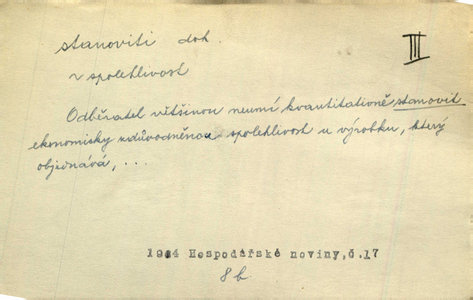 stanoviti dok.
III
v spolehlivost
Odběratel většinou neumí kvantitativně stanovit
ekonomicky zdůvodněnou spolehlivost u výrobku, který
objednává, ...
1964 Hospodářské noviny,č.17
8b